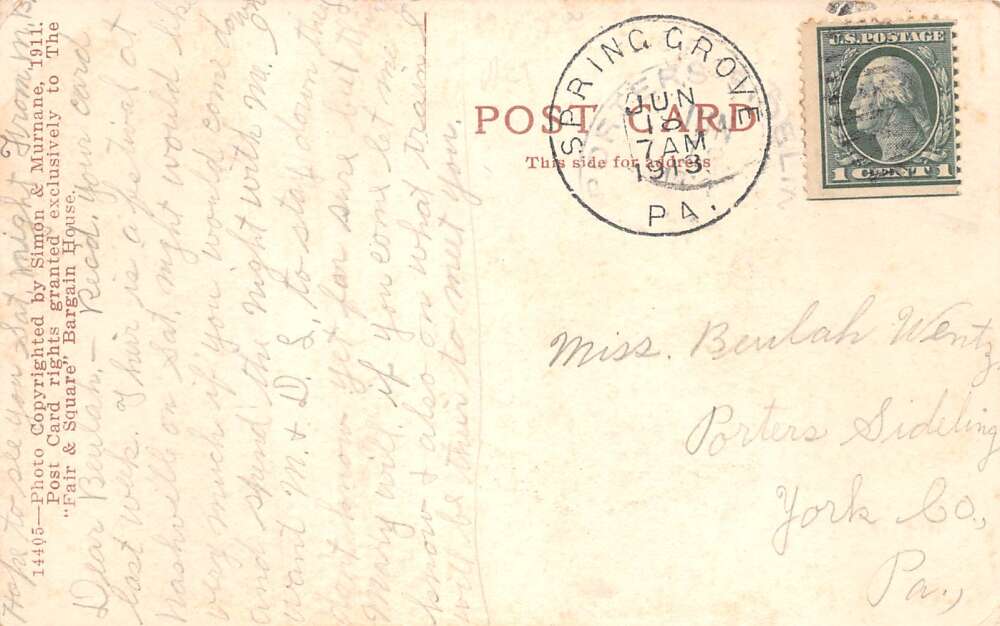 POST CARD
This side for address
SPRING GROVE
JUN
12
7AM
1913
PA.
U.S. POSTAGE
1 CENT 1
Miss. Beulah Wentz
Porters Sideling
York Co.,
Pa.,
14405—Photo Copyrighted by Simon & Murnane, 1911.
Post Card rights granted exclusively to The
"Fair & Square" Bargain House.
Hope to see you Sat. night From
Dear Beulah.— Recd. your card
last wek. Their is a festival at
Nashville on Sat. night would like
very much if you would come down
and spend the night with me. I
want M. & D. L. to
know yet for sure but
Mary will, if you come let me
know & also on what train I
will be their to meet you.